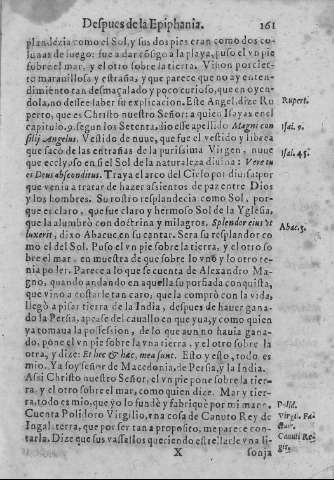 Despues de la Epiphania. 161
plandezia como el Sol, y sus dos pies eran como dos co-
lunas de fuego: fue a dar cōsigo a la playa, puso el vn pie
sobre el mar, y el otro sobre la tierra. Visiō por cier-
to marauillosa y estraña, y que parece que no ay enten-
dimiento tan desmaçalado y poco curioso, que en oyen-
dola, no dessee saber su explicacion. Este Angel, dize Ru
perto, que es Christo nuestro Señor: a quien Isayas en el
capitulo. 9. segun los Setenta, dio este apellido Magni con
silij Angelus. Vestido de nuue, que fue el vestido y librea
que saco de las entrañas de la purissima Virgen, nuue
que eclypso en si el Sol de la naturaleza diuina: Vere tu
es Deus absconditus. Traya el arco del Cielo por diuisa: por
que venia a tratar de hazer assientos de paz entre Dios
y los hombres. Su rostro resplandecia como Sol, por-
que es claro, que fue claro y hermoso Sol de la Yglesia,
que la alumbrò con doctrina y milagros. Splendor eius vt
lux erit, dixo Abacuc en su cantar. Sera su resplandor co
mo el del Sol. Puso el vn pie sobre la tierra, y el otro so
bre el mar, en muestra de que sobre lo vno y lo otro te-
nia poder. Parece a lo que se cuenta de Alexandro Ma-
gno, quando andando en aquella su porfiada conquista,
que vino a costarle tan caro, que la comprò con la vida,
llegò a pisar tierra de la India, despues de hauer gana-
do la Persa, apease del cauallo en que yua, y como quien
ya tomaua la possession, de lo que aun no hauia gana-
do, pone el vn pie sobre la vna tierra, y el otro sobre la
otra, y dize: Et hec & hæc, mea sunt. Esto y esto, todo es
mio. Ya soy señor de Macedonia, de Persia, y la India.
Assi Christo nuestro Señor, el vn pie pone sobre la tier-
ra, y el otro sobre el mar, como quien dize. Mar y tier-
ra, todo es mio, que yo lo fundè y fabriquè por mi mano.
Cuenta Polidoro Virgilio, vna cosa de Canuto Rey de
Ingalaterra, que por ser tan a proposito, me parece con-
tarla. Dize que sus vassallos queriendo estrellarle vna li-
X sonja
Rupert.
Isai. 9.
Isai. 45.
Abac. 3.
Polid.
Virgi.
Canuti Re-
gis.